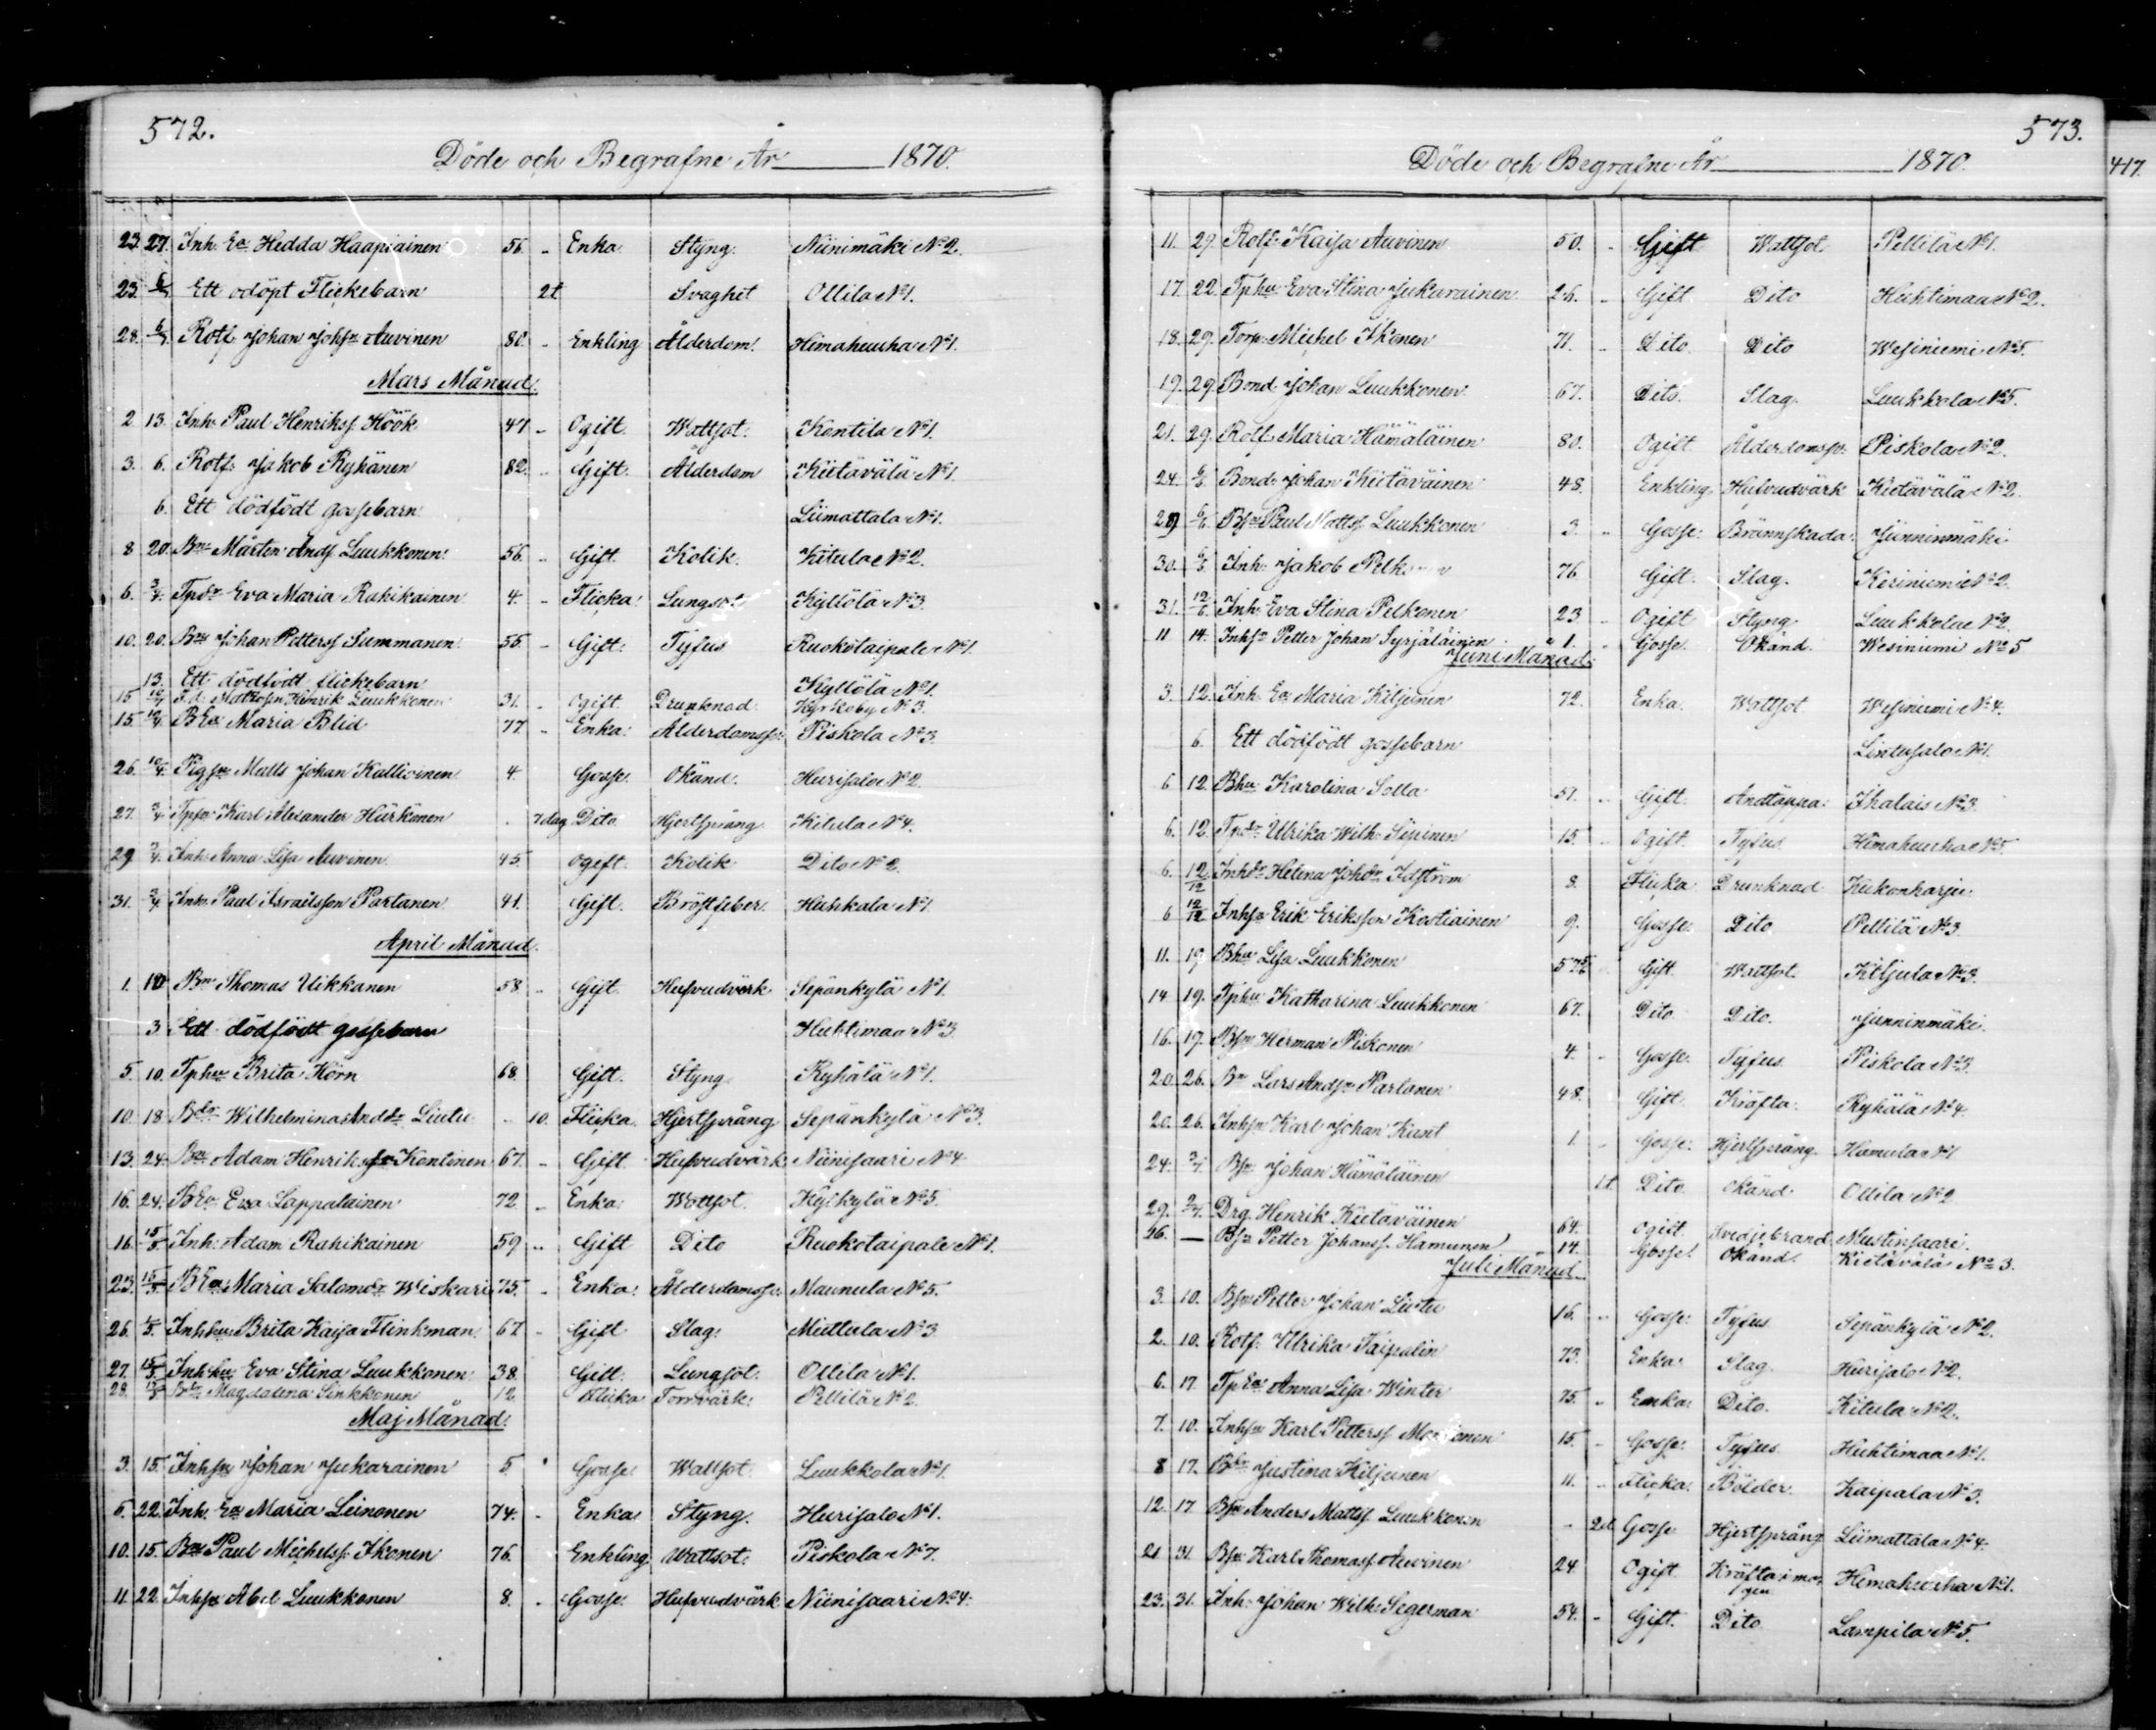 572.
Döde och Begrafne År 1870.
23. 27. Inh. Ea Hedda Haapiainen 56. - Enka Styng. Niinimäki No 2.
23. 6/3 Ett odöpt Flickebarn 2t Svaghet Ollila No 1.
28. 6/3 Rotf. Johan Johsn Auvinen 80. - Enkling Ålderdom. Himahuuha No 1.
Mars Månad.
2 13. Inh. Paul Henriksf. Höök 47 - Ogift. Wattsot. Kontila No 1.
3. 6. Rotf. Jakob Ryhänen 82. - Gift. Ålderdom Kietävälä No 1.
6. Ett dödfödt gossebarn Liimattala No 1.
8 20. Bn Mårten Andf. Luukkonen 56. - Gift. Kolik. Kitula No 2.
6. 3/4 Tpdr Eva Maria Rahikainen 4. - Flicka Lungsot Kyllölä No 3.
10. 20. Bn Johan Pettersf Summanen 55 - Gift. Tyfus Ruokotaipale No 1.
13. Ett dödfödt flickebarn Kyllölä No 1.
15 10/4 F.d. Matrosen Henrik Luukkonen 31. - Ogift Drunknad Kyrkoby No 3.
15. 10/4 BEa Maria Blid 77 - Enka. Ålderdomssv. Piskola No 3.
26. 10/4 Pigsn Matts Johan Kallioinen 4. Gosse. Okänd. Hurisalo No 2.
27. 3/4 Tpsn Karl Alexander Härkönen - 7dag Dito Hjertsprång Kitula No 4.
29 3/4 Inh. Anna Lisa Auvinen 45 Ogift. Kolik Dito No 2.
31. 3/4 Inh. Paul Israelsson Partanen 41. Gift. Bröstfeber. Huhkala No 1
April Månad.
1. 10 Bn Thomas Uikkanen 58 - Gift Hufvudvärk Sepänkylä No 1.
3 Ett dödfödt gossebarn Huhtimaa No 3
5 10. Tphu Brita Hörn 68. Gift. Styng. Ryhälä No 1.
10. 18 Bdr Wilhelmina Anddr Liutu - 10. Flicka. Hjertsprång Sepänkylä No 3.
13. 24. Bn Adam Henriksson Kontinen 67. - Gift Hufvudvärk Niinisaari No 4
16. 24. BEa Eva Lappalainen 72 - Enka. Wattsot Kylkylä No 5.
16. 15/5 Inh. Adam Rahikainen 59 - Gift Dito Ruokotaipale No 1.
23. 15/5 BEa Maria Salomdr Wiskari 75. - Enka. Ålderdomssv. Maunula No 5.
26. 1/5. Inhhu Brita Kaisa Flinkman 67 - Gift Slag. Miettula No 3
27. 15/5 Inhhu Eva Stina Luukkonen 38. Gift. Lungsot. Ollila No 1.
28. 15/5 Bdr Magdalena Sinkkonen 12. Flicka Torrvärk. Pellilä No 2.
Maj Månad.
3. 15. Inhsn Johan Jukarainen 5 Gosse. Wattsot. Luukkola No 1.
5. 22. Inh. Ea Maria Leinonen 74. - Enka Styng. Hurisalo No 1.
10. 15. Bn Paul Michelsf. Ikonen 76. Enkling Wattsot. Piskola No 7.
11. 22. Inhsn Abel Luukkonen 8. - Gosse. Hufvudvärk Niinisaari No 4.
573.
Döde och Begrafne År 1870.
417.
11. 29. Rotf. Kaisa Auvinen 50. - Gift Wattsot Pellilä No 1.
17. 22. Tphu Eva Stina Jukarainen 26. - Gift Dito Huhtimaa No 2.
18. 29. Torp. Michel Ikonen 71. - Dito Dito Wesiniemi No 5.
19. 29. Bond. Johan Luukkonen 67. Dito. Slag. Luukkola No 5.
21. 29. Rotf. Maria Hämäläinen 80. Ogift Ålderdomssv. Piskola No 2.
24. 6/6 Bond. Johan Kietäväinen 48. Enkling Hufvudvärk Kietävälä No 2.
29 6/6 Bsn Paul Mattsf. Luukkonen 3. - Gosse. Brännskada. Junninmäki
30. 6/6. Inh. Jakob Pelkonen 76. Gift. Slag. Keriniemi No 2.
31. 12/6 Inh. Eva Stina Pelkonen 23 - Ogift Styng Luukkola No 2
11 14. Inhsn Petter Johan Syrjäläinen 1. Gosse. Okänd. Wesiniemi No 5
Juni Månad.
3. 12. Inh. Ea Maria Kiljunen 72. Enka. Wattsot Wesiniemi No 4.
6. Ett dödfödt gossebarn Lintusalo No 1.
6 12. Bhu Karolina Solla 51. - Gift. Andtäppa. Ihalais No 3
6. 12. Tpdr Ulrika Wilh. Sipinen 15. - Ogift. Tyfus. Himahuuha No 5.
6. 12/12 Inhdr Helena Johdr Idström 8. Flicka Drunknad Kukonharju.
6 12/12 Inhsn Erik Eriksson Kostiainen 9. Gosse. Dito Pellilä No 3
11. 19 Bhu Lisa Luukkonen 57 Gift. Wattsot Kiljula No 3.
14 19. Tphu Katharina Luukkonen 67. Dito Dito. Junninmäki.
16. 19. Bsn Herman Piskonen 4. - Gosse. Tyfus Piskola No 3.
20. 26. Bn Lars Andsn Partanen 48. Gift. Kräfta. Ryhälä No 4
20. 26. Inhsn Karl Johan Kant 1. - Gosse. Hjertsprång. Hamula No 1
24. 3/7 Bsn Johan Hämäläinen 1t. Dito Okänd Ollila No 2
29. 3/7. Drg. Henrik Kietäväinen 64. Ogift. Svedjebrand Mustinsaari.
26. — Bsn Petter Johansf. Hamunen 14. Gosse. Okänd. Kietävälä No 3.
Juli Månad.
3. 10. Bsn Petter Johan Liutu 16. - Gosse. Tyfus Sepänkylä No 2.
2. 10. Rotf. Ulrika Taipalin 73. Enka. Slag. Hurisalo No 2.
6. 17 TpEa Anna Lisa Winter 75. - Enka. Dito. Kitula No 2.
7. 10. Inhsn Karl Pettersf. 15. - Gosse. Tyfus Huhtimaa No 1.
8 17. Bdr Justina Kiljunen 11. - Flicka. Bölder. Kaipala No 3.
12. 17 Bsn Anders Mattsf. Luukkonen - 2d. Gosse Hjertsprång Liimattala No 4.
21 31. Bsn Karl Thomasf. Auvinen 24. Ogift Kräfta i magen Himahuuha No 1.
23. 31. Inh. Johan Wilh. Segerman 54. - Gift. Dito Lampila No 5.